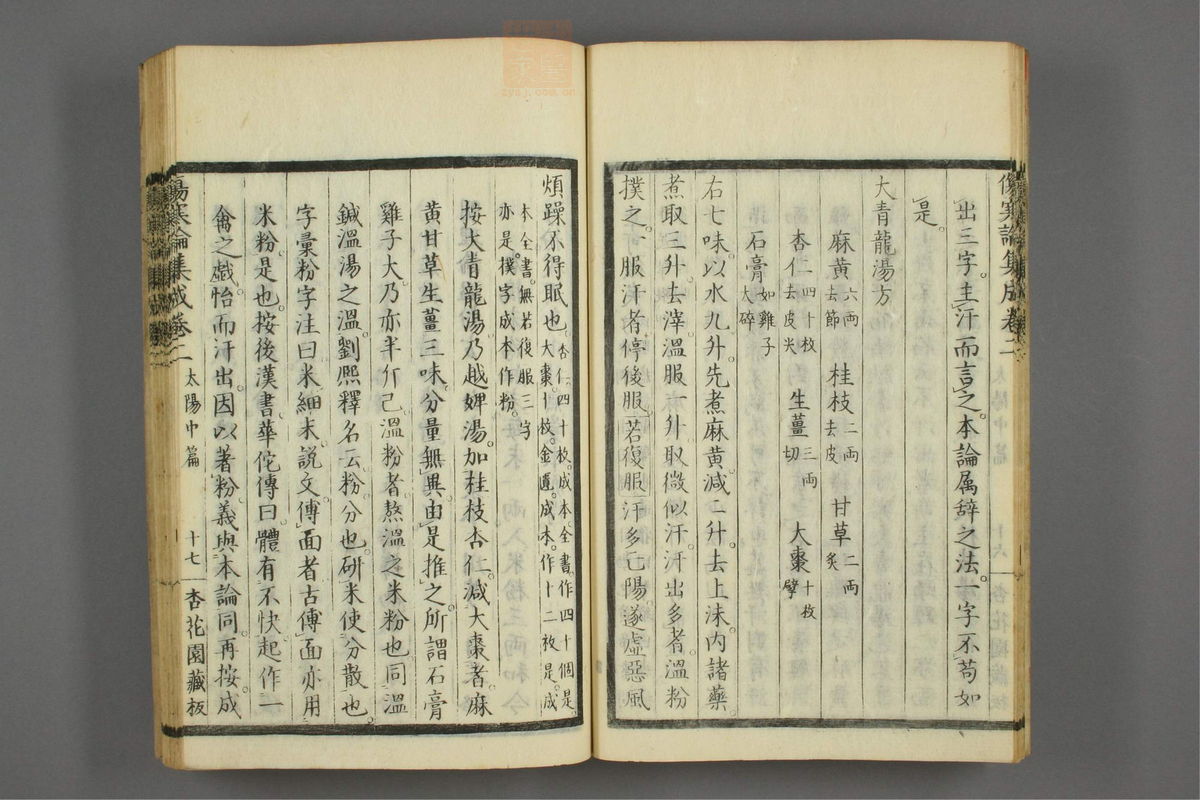 傷寒論集成卷二
出三字。圭汗而言之。本論属辞之法。一字不苟如
是。
大青龍湯方
麻黄六両去節 桂枝二両去皮 甘草二両炙
杏仁四十枚去皮尖 生薑三両切 大棗十枚擘
石膏如雞子大碎
右七味。以水九升。先煮麻黄。減二升。去上沫。内諸藥。
煮取三升。去滓。溫服一升。取微似汗。汗出多者。溫粉
撲之。一服汗者。停後服。若復服。汗多亡陽遂虛。惡風
煩躁不得眠也。杏仁四十枚。成本全書。作四十個是。大棗十枚。金匱。成本。作十二枚是。成
本全書。無若復服三字亦是。撲字成本作粉。
按大青龍湯。乃越婢湯。加桂枝杏仁。減大棗者。麻
黄甘草生薑三味。分量無異。由是推之。所謂石膏
雞子大。乃亦半斤已。溫粉者。熬溫之米粉也。同溫
鍼溫湯之溫。劉熙釋名云。粉分也。研米使分散也。
字彙粉字注曰。米細末。說文。傅面者。古傅面亦用
米粉是也。按後漢書華佗傳曰。體有不快。起作一
禽之戲。怡而汗出。因以著粉。義與本論同。再按。成
傷寒論集成卷二 太陽中篇 十七 杏花園藏板